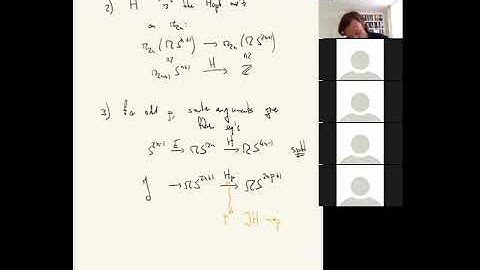 2) H is the Hopf inv't
on π₂ₙ
π₂ₙ(ΩSⁿ⁺¹) → π₂ₙ(ΩS²ⁿ⁺¹)
π₂ₙ₊₁Sⁿ⁺¹ H → ℤ
3) For odd p, similar arguments give
fiber seq's
S²ⁿ⁻¹ E → ΩS²ⁿ H → ΩS⁴ⁿ⁻¹ split
J → ΩS²ⁿ⁺¹ Hₚ → ΩS²ⁿᵖ⁺¹
JH map